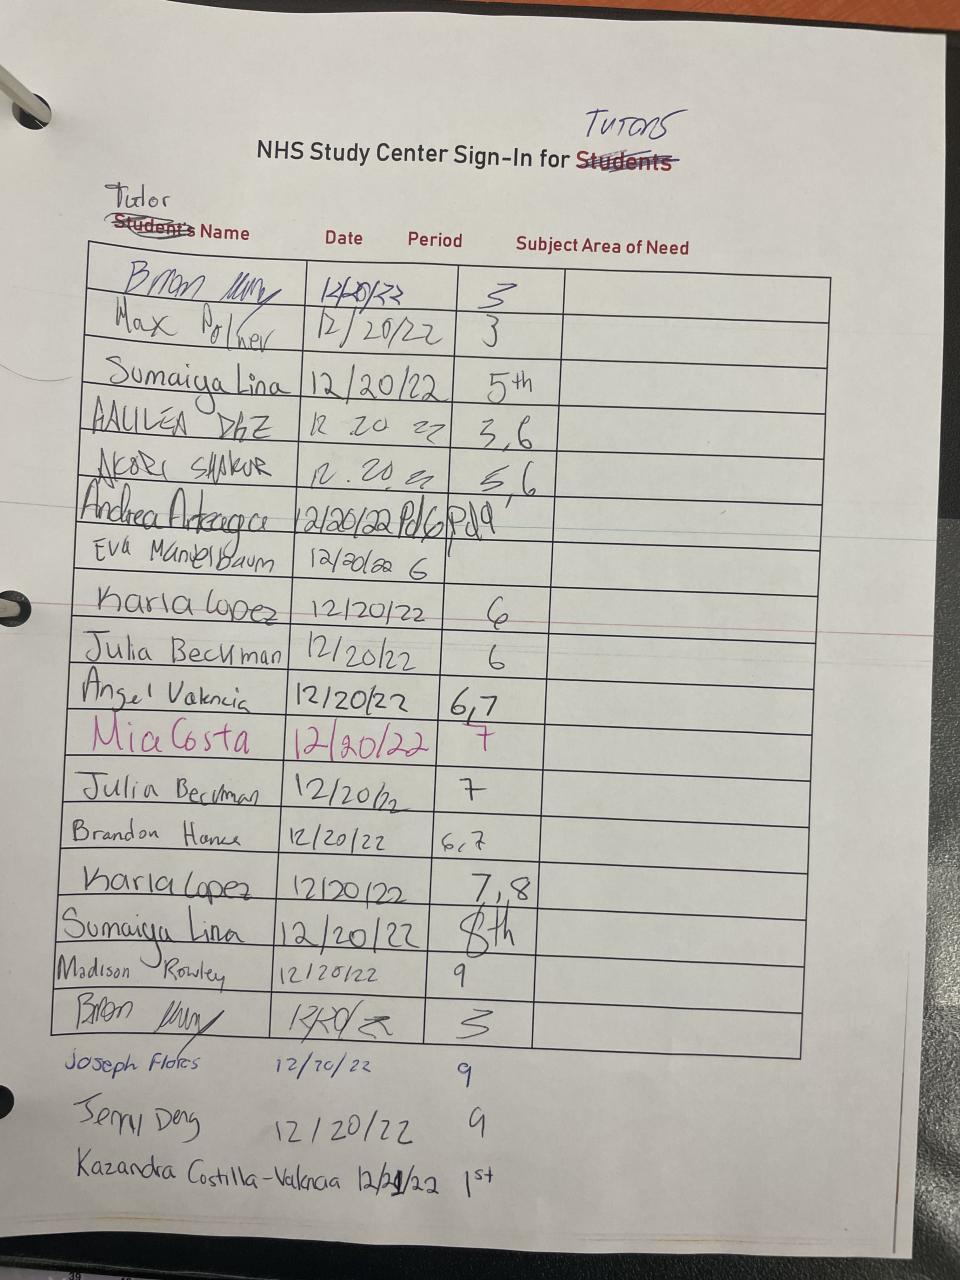 TUTORS
NHS Study Center Sign-In for Students
Tutor
Student's Name Date Period Subject Area of Need
Brian 12/20/22 3
Max Polner 12/20/22 3
Sumaiya Lina 12/20/22 5th
12 20 22 3,6
AKORI SHAKUR 12.20.22 5,6
Andrea Arteaga 12/20/22 Pd6, Pd9
Eva Mandelbaum 12/20/22 6
Karla Lopez 12/20/22 6
Julia Beckman 12/20/22 6
Angel Valencia 12/20/22 6,7
Mia Costa 12/20/22 7
Julia Beckman 12/20/22 7
Brandon 12/20/22 6,7
Karla Lopez 12/20/22 7,8
Sumaiya Lina 12/20/22 8th
Madison Rowley 12/20/22 9
Brian 3
Joseph Flores 12/20/22 9
Jerry Deng 12/20/22 9
Kazandra Costilla-Valencia 12/21/22 1st
39